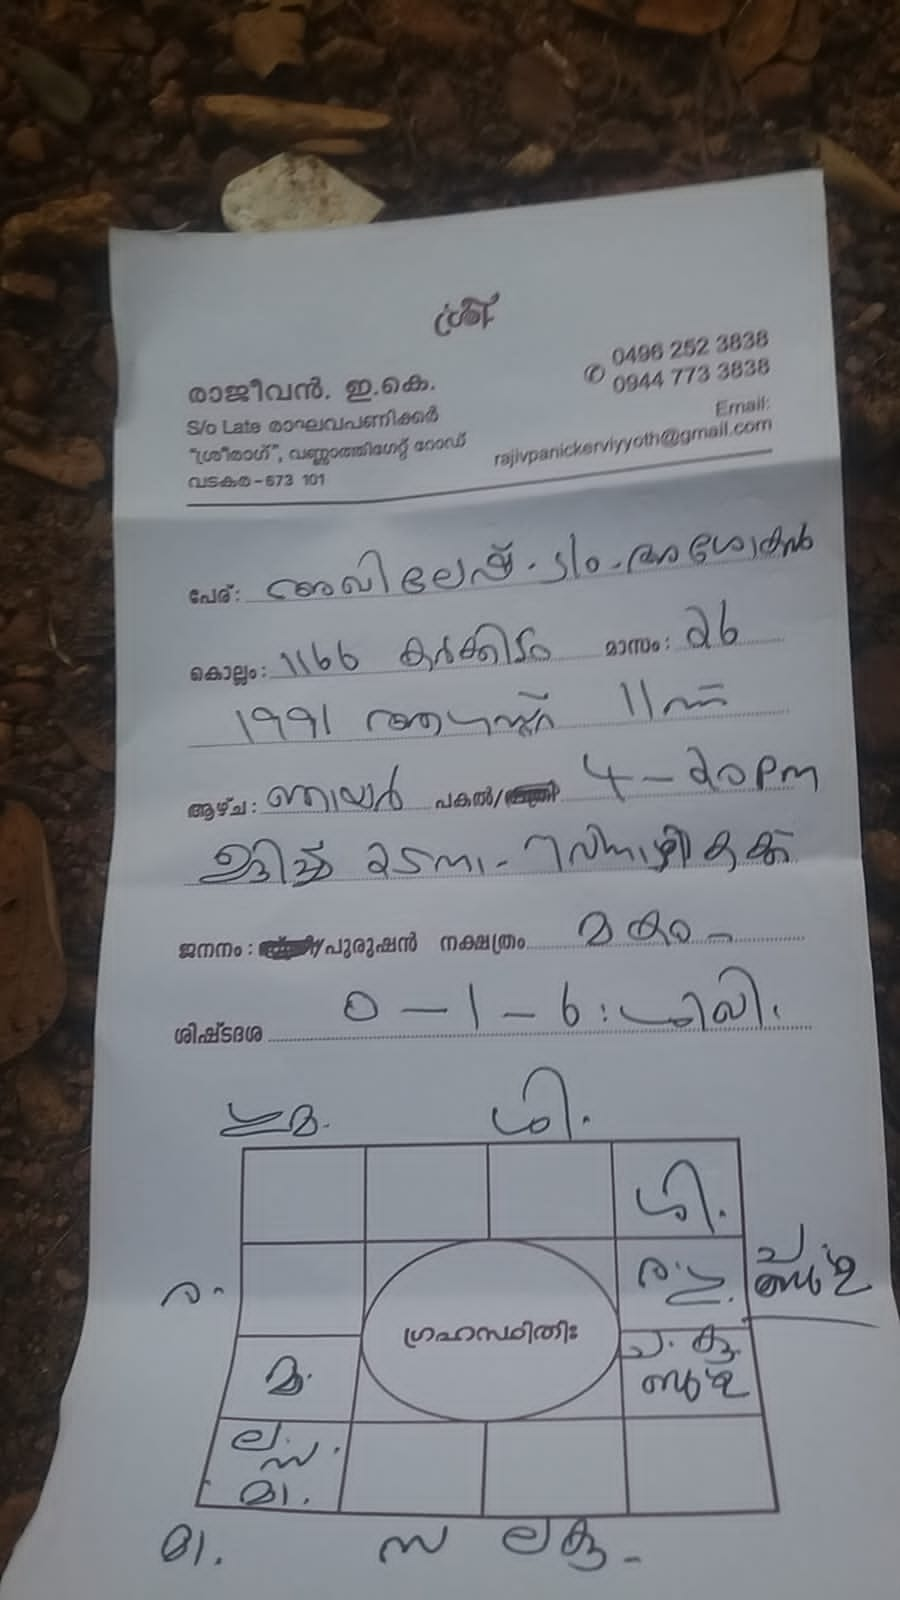 ശ്രീ
രാജീവൻ. ഇ.കെ.
S/o Late രാഘവപണിക്കർ
"ശ്രീരാഗ്", വണ്ണാത്തിഗേറ്റ് റോഡ്
വടകര - 673 101
✆ 0496 252 3838
0944 773 3838
Email:
rajivpanickerviyyoth@gmail.com
പേര്: അഖിലേഷ് . S/o . അശോകൻ
കൊല്ലം: 1166 കർക്കിടം മാസം: 26
1991 ആഗസ്റ്റ് 11ന്
ആഴ്ച: ഞായർ പകൽ/ 4 - 20 pm
ജനനം: /പുരുഷൻ നക്ഷത്രം മകം -
ശിഷ്ടദശ 0 - 1 - 6 : ശിഖി.
ശി.
ശി.
ര.
ഗ്രഹസ്ഥിതിഃ
മ.
ല.
മാ.
മാ.